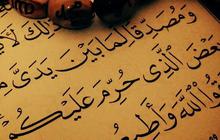 ذَٰلِكَ
وَمُصَدِّقًا لِّمَا بَيْنَ يَدَىَّ
عْضَ الَّذِى حُرِّمَ عَلَيْكُمْ
وا اللَّهَ وَأَطِيعُو